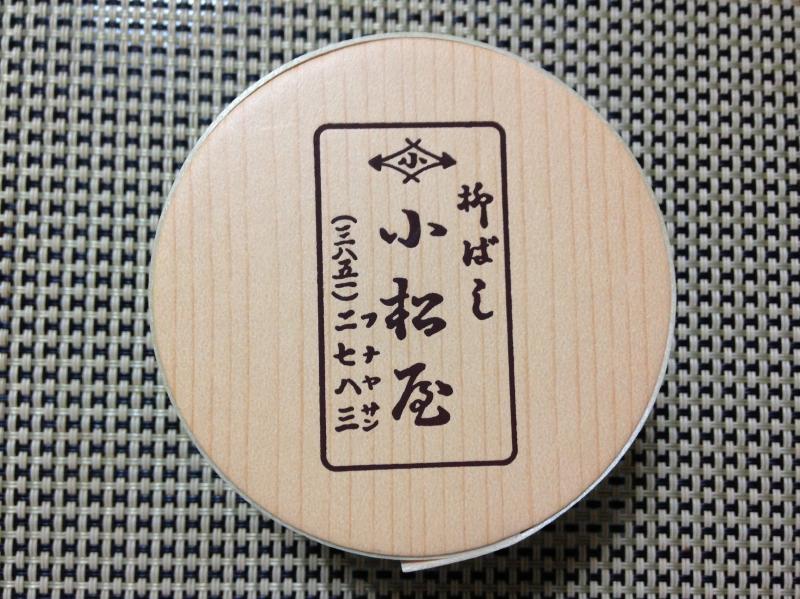 柳ばし
小
小松屋
フナヤサン
(三八五一)二七八三